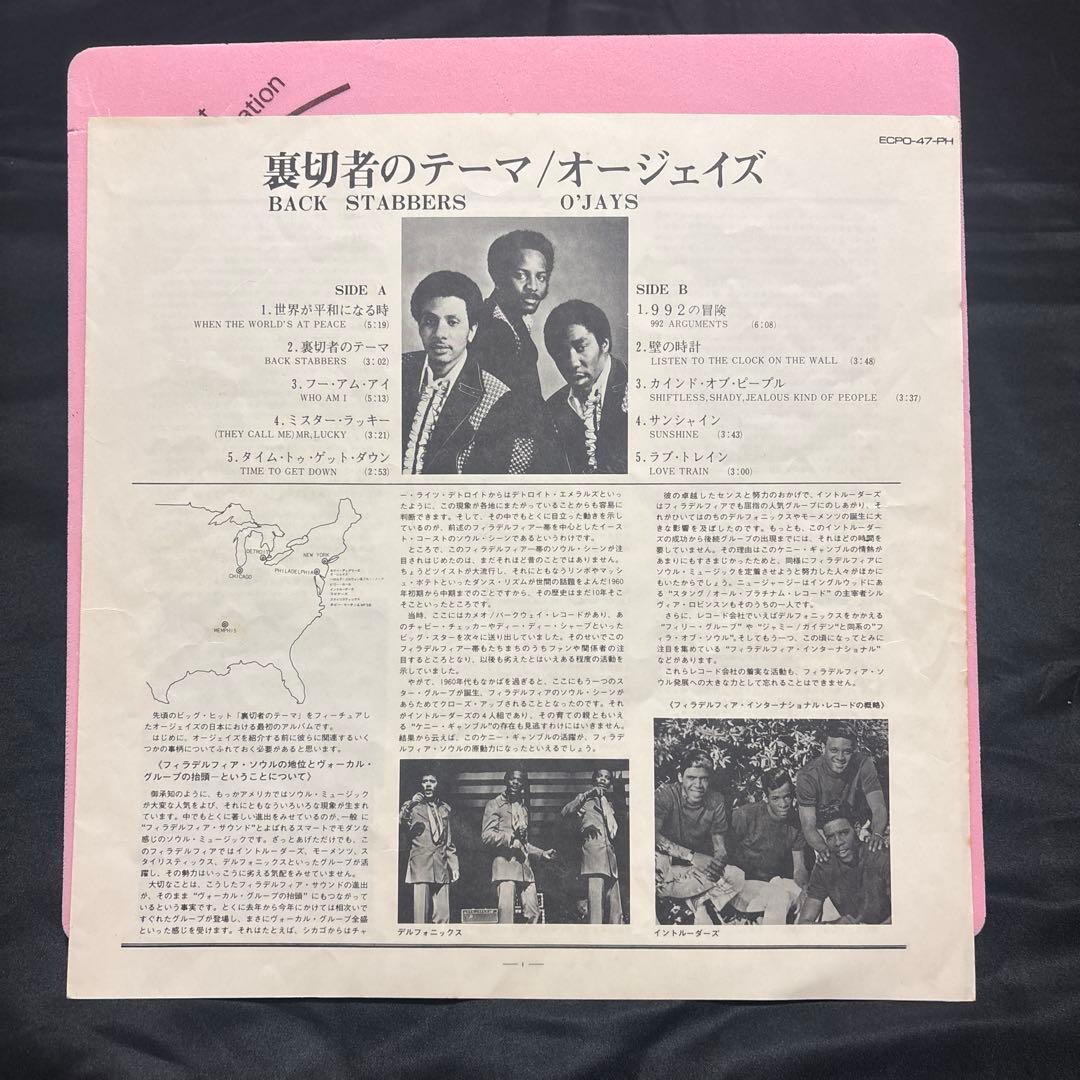 ation
ECPO-47-PH
裏切者のテーマ/オージェイズ
BACK STABBERS O'JAYS
SIDE A
1.世界が平和になる時
WHEN THE WORLD'S AT PEACE (5:19)
2.裏切者のテーマ
BACK STABBERS (3:02)
3.フー・アム・アイ
WHO AM I (5:13)
4.ミスター・ラッキー
(THEY CALL ME)MR,LUCKY (3:21)
5.タイム・トゥ・ゲット・ダウン
TIME TO GET DOWN (2:53)
SIDE B
1.992の冒険
992 ARGUMENTS (6:08)
2.壁の時計
LISTEN TO THE CLOCK ON THE WALL (3:48)
3.カインド・オブ・ピープル
SHIFTLESS,SHADY,JEALOUS KIND OF PEOPLE (3:37)
4.サンシャイン
SUNSHINE (3:43)
5.ラブ・トレイン
LOVE TRAIN (3:00)
DETROIT
NEW YORK
CHICAGO
PHILADELPHIA
MEMPHIS
先頃のビッグ・ヒット「裏切者のテーマ」をフィーチュアし
たオージェイズの日本における最初のアルバムです。
はじめに、オージェイズを紹介する前に彼らに関連するいく
つかの事柄についてふれておく必要があると思います。
《フィラデルフィア・ソウルの地位とヴォーカル・
グループの抬頭―ということについて》
御承知のように、もっかアメリカではソウル・ミュージック
が大変な人気をよび、それにともないいろいろな現象が生まれ
ています。中でもとくに著しい進出をみせているのが、一般に
"フィラデルフィア・サウンド"とよばれるスマートでモダンな
感じのソウル・ミュージックです。ざっとあげただけでも、こ
のフィラデルフィアではイントルーダーズ、モーメンツ、ス
タイリスティックス、デルフォニックスといったグループが活
躍し、その勢力はいっこうに劣える気配をみせていません。
大切なことは、こうしたフィラデルフィア・サウンドの進出
が、そのまま"ヴォーカル・グループの抬頭"にもつながって
いるという事実です。とくに去年から今年にかけては相次いで
すぐれたグループが登場し、まさにヴォーカル・グループ全盛
といった感じを受けます。それはたとえば、シカゴからはチャ
ー・ライツ・デトロイトからはデトロイト・エメラルズといっ
たように、この現象が各地にまたがっていることからも容易に
判断できます。そして、その中でもとくに目立った動きを示し
ているのが、前述のフィラデルフィア一帯を中心としたイース
ト・コーストのソウル・シーンであるというわけです。
ところで、このフィラデルフィア一帯のソウル・シーンが注
目されはじめたのは、まだそれほど昔のことではありません。
ちょうどツイストが大流行し、それにともなうリンボやマッシ
ュ・ポテトといったダンス・リズムが世間の話題をよんだ1960
年初期から中期までのことですから、その歴史はまだ10年そこ
そこといったところです。
当時、ここにはカメオ/パークウェイ・レコードがあり、あ
のチャビー・チェッカーやディー・ディー・シャープといった
ビッグ・スターを次々に送り出していました。そのせいでこの
フィラデルフィア一帯もたちまちのうちファンや関係者の注
目するところとなり、以後も劣えたとはいえある程度の活動を
示していました。
やがて、1960年代もなかばを過ぎると、ここにもう一つのス
ター・グループが誕生、フィラデルフィアのソウル・シーンが
あらためてクローズ・アップされることとなったのです。それ
がイントルーダーズの4人組であり、その育ての親ともいえ
る"ケニー・ギャンブル"の存在も見逃すわけにはいきません。
結果から云えば、このケニー・ギャンブルの活躍が、フィラデ
ルフィア・ソウルの原動力になったといえるでしょう。
デルフォニックス
彼の卓越したセンスと努力のおかげで、イントルーダーズ
はフィラデルフィアでも屈指の人気グループにのしあがり、そ
れがひいてはのちのデルフォニックスやモーメンツの誕生に大
きな影響を及ぼしたのです。もっとも、このイントルーダー
ズの成功から後続グループの出現までには、それほどの時間を
要していません。その理由はこのケニー・ギャンブルの情熱が
あまりにもすさまじかったためと、同様にフィラデルフィアに
ソウル・ミュージックを定着させようと努力した人々がほかに
もいたからでしょう。ニュージャージーはイングルウッドにある
"スタング/オール・プラチナム・レコード"の主宰者シル
ヴィア・ロビンスンもそのうちの一人です。
さらに、レコード会社でいえばデルフォニックスをかかえる
"フィリー・グループ"や"ジャミー/ガイデン"と同系の"フ
ィラ・オブ・ソウル"。そしてもう一つ、この頃になってとみに
注目を集めている"フィラデルフィア・インターナショナル"
などがあります。
これらレコード会社の着実な活動も、フィラデルフィア・ソ
ウル発展への大きな力として忘れることはできません。
《フィラデルフィア・インターナショナル・レコードの概略》
イントルーダーズ
— 1 —